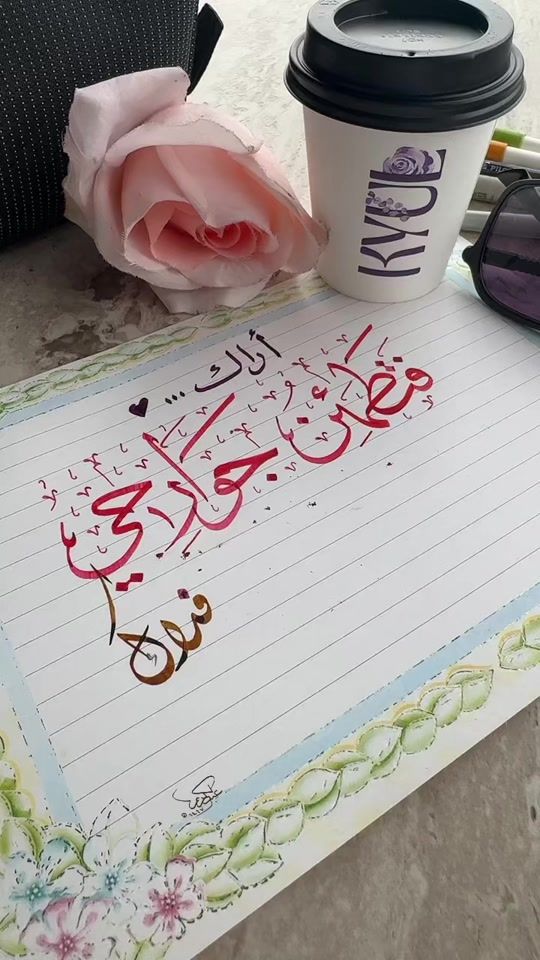 KYUL
أراك ... ♥
فتطمئن جوارحي